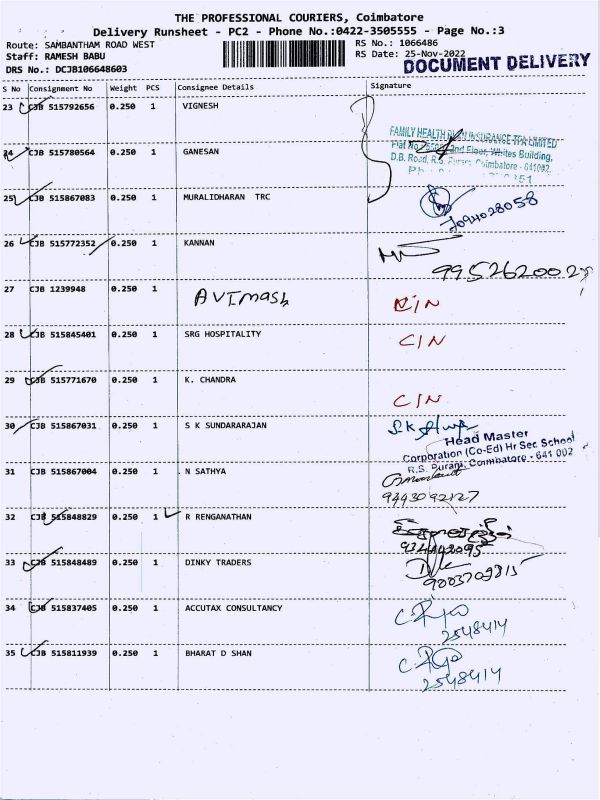 THE PROFESSIONAL COURIERS, Coimbatore
Delivery Runsheet - PC2 - Phone No.:0422-3505555 - Page No.:3
Route: SAMBANTHAM ROAD WEST
RS No.: 1066486
Staff: RAMESH BABU
RS Date: 25-Nov-2022
DRS No.: DCJB106648603
DOCUMENT DELIVERY
S No Consignment No Weight PCS Consignee Details Signature
23 CJB 515792656 0.250 1 VIGNESH
FAMILY HEALTH PLAN INSURANCE TPA LIMITED
2nd Floor, Whites Building,
24 CJB 515780564 0.250 1 GANESAN
D.B. Road, R.S. Puram, Coimbatore - 641002.
25 CJB 515867083 0.250 1 MURALIDHARAN TRC
7094028058
26 CJB 515772352 0.250 1 KANNAN
9952620027
27 CJB 1239948 0.250 1 AVIMASH C/N
28 CJB 515845401 0.250 1 SRG HOSPITALITY C/N
29 CJB 515771670 0.250 1 K. CHANDRA
C/N
30 CJB 515867031 0.250 1 S K SUNDARARAJAN S.K
Head Master
Corporation (Co-Ed) Hr Sec School
R.S. Puram, Coimbatore - 641 002
31 CJB 515867004 0.250 1 N SATHYA
9443092127
32 CJB 515848829 0.250 1 R RENGANATHAN
33 CJB 515848489 0.250 1 DINKY TRADERS
9003709815
34 CJB 515837405 0.250 1 ACCUTAX CONSULTANCY
2548414
35 CJB 515811939 0.250 1 BHARAT D SHAN
2548414